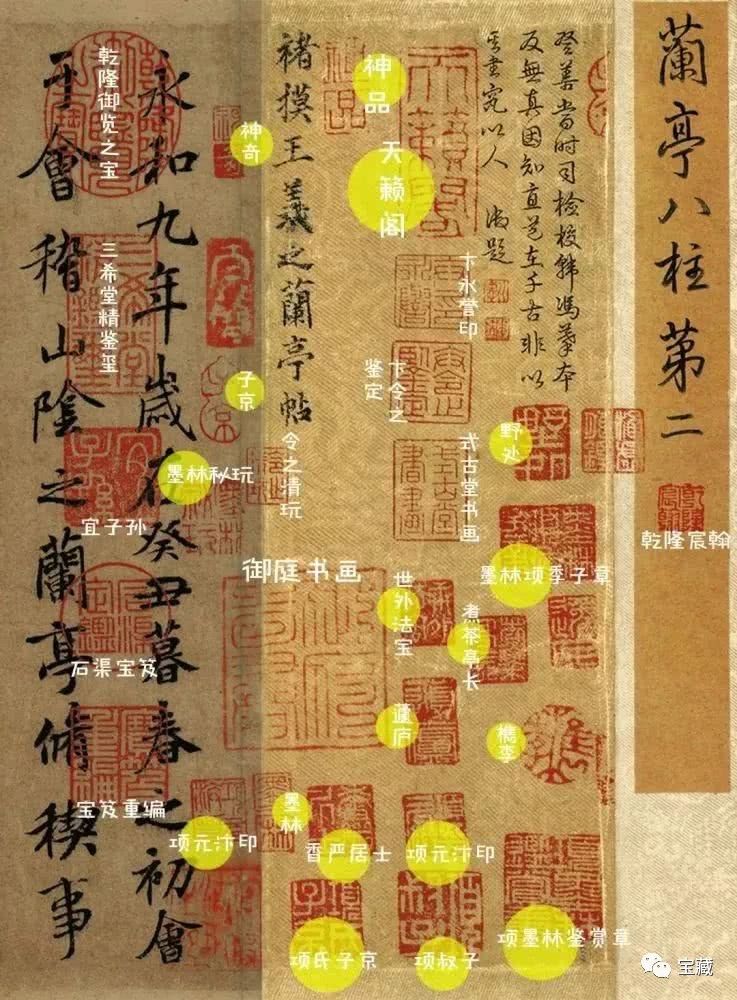 蘭亭八柱第二
乾隆宸翰
登善當時司檢校韓馮摹本
反無真因知直道在千古非以
其書究以人 御題
褚摸王羲之蘭亭帖
永和九年歲在癸丑暮春之初會
于會稽山陰之蘭亭脩稧事
神品
天籁阁
卞永誉印
卞令之
鉴定
式古堂书画
令之清玩
野处
墨林项季子章
世外法宝
煮茶亭长
蘧庐
檇李
御庭书画
神奇
子京
墨林秘玩
乾隆御览之宝
三希堂精鉴玺
宜子孙
石渠宝笈
宝笈重编
项元汴印
墨林
香严居士
项元汴印
项墨林鉴赏章
项氏子京
项叔子
宝藏